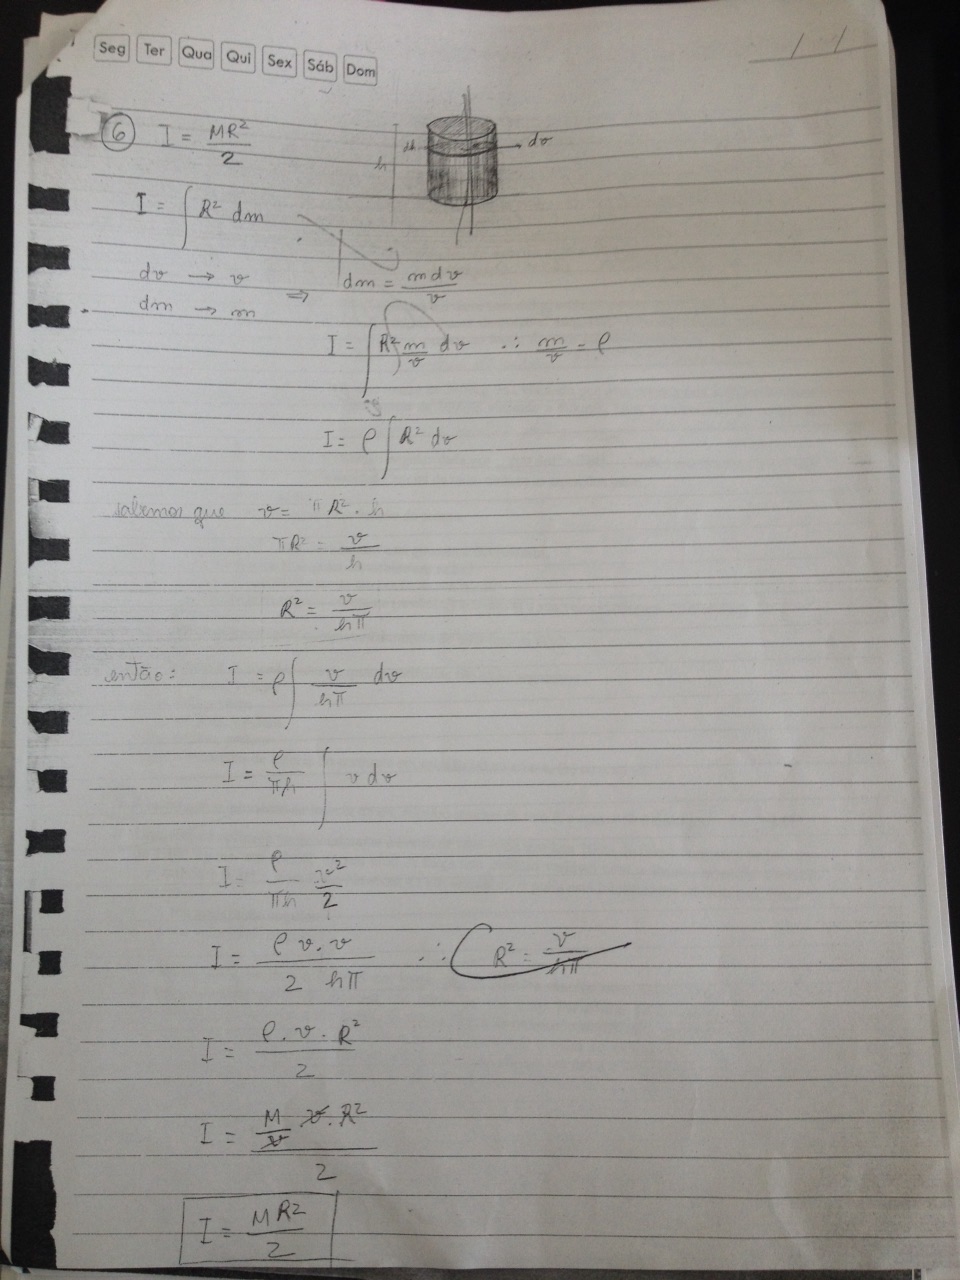 Seg Ter Qua Qui Sex Sáb Dom
/ /
6 I = MR²/2
h dv
I = ∫ R² dm
dv → v
dm → m ⇒ dm = m dv/v
I = ∫ R² m/v dv ∴ m/v = ρ
I = ρ ∫ R² dv
sabemos que v = π R² . h
πR² = v/h
R² = v/hπ
então: I = ρ ∫ v/hπ dv
I = ρ/πh ∫ v dv
I = ρ/πh v²/2
I = ρ v . v/2 hπ ∴ R² = v/hπ
I = ρ . v . R²/2
I = M/v v . R²/2
I = MR²/2